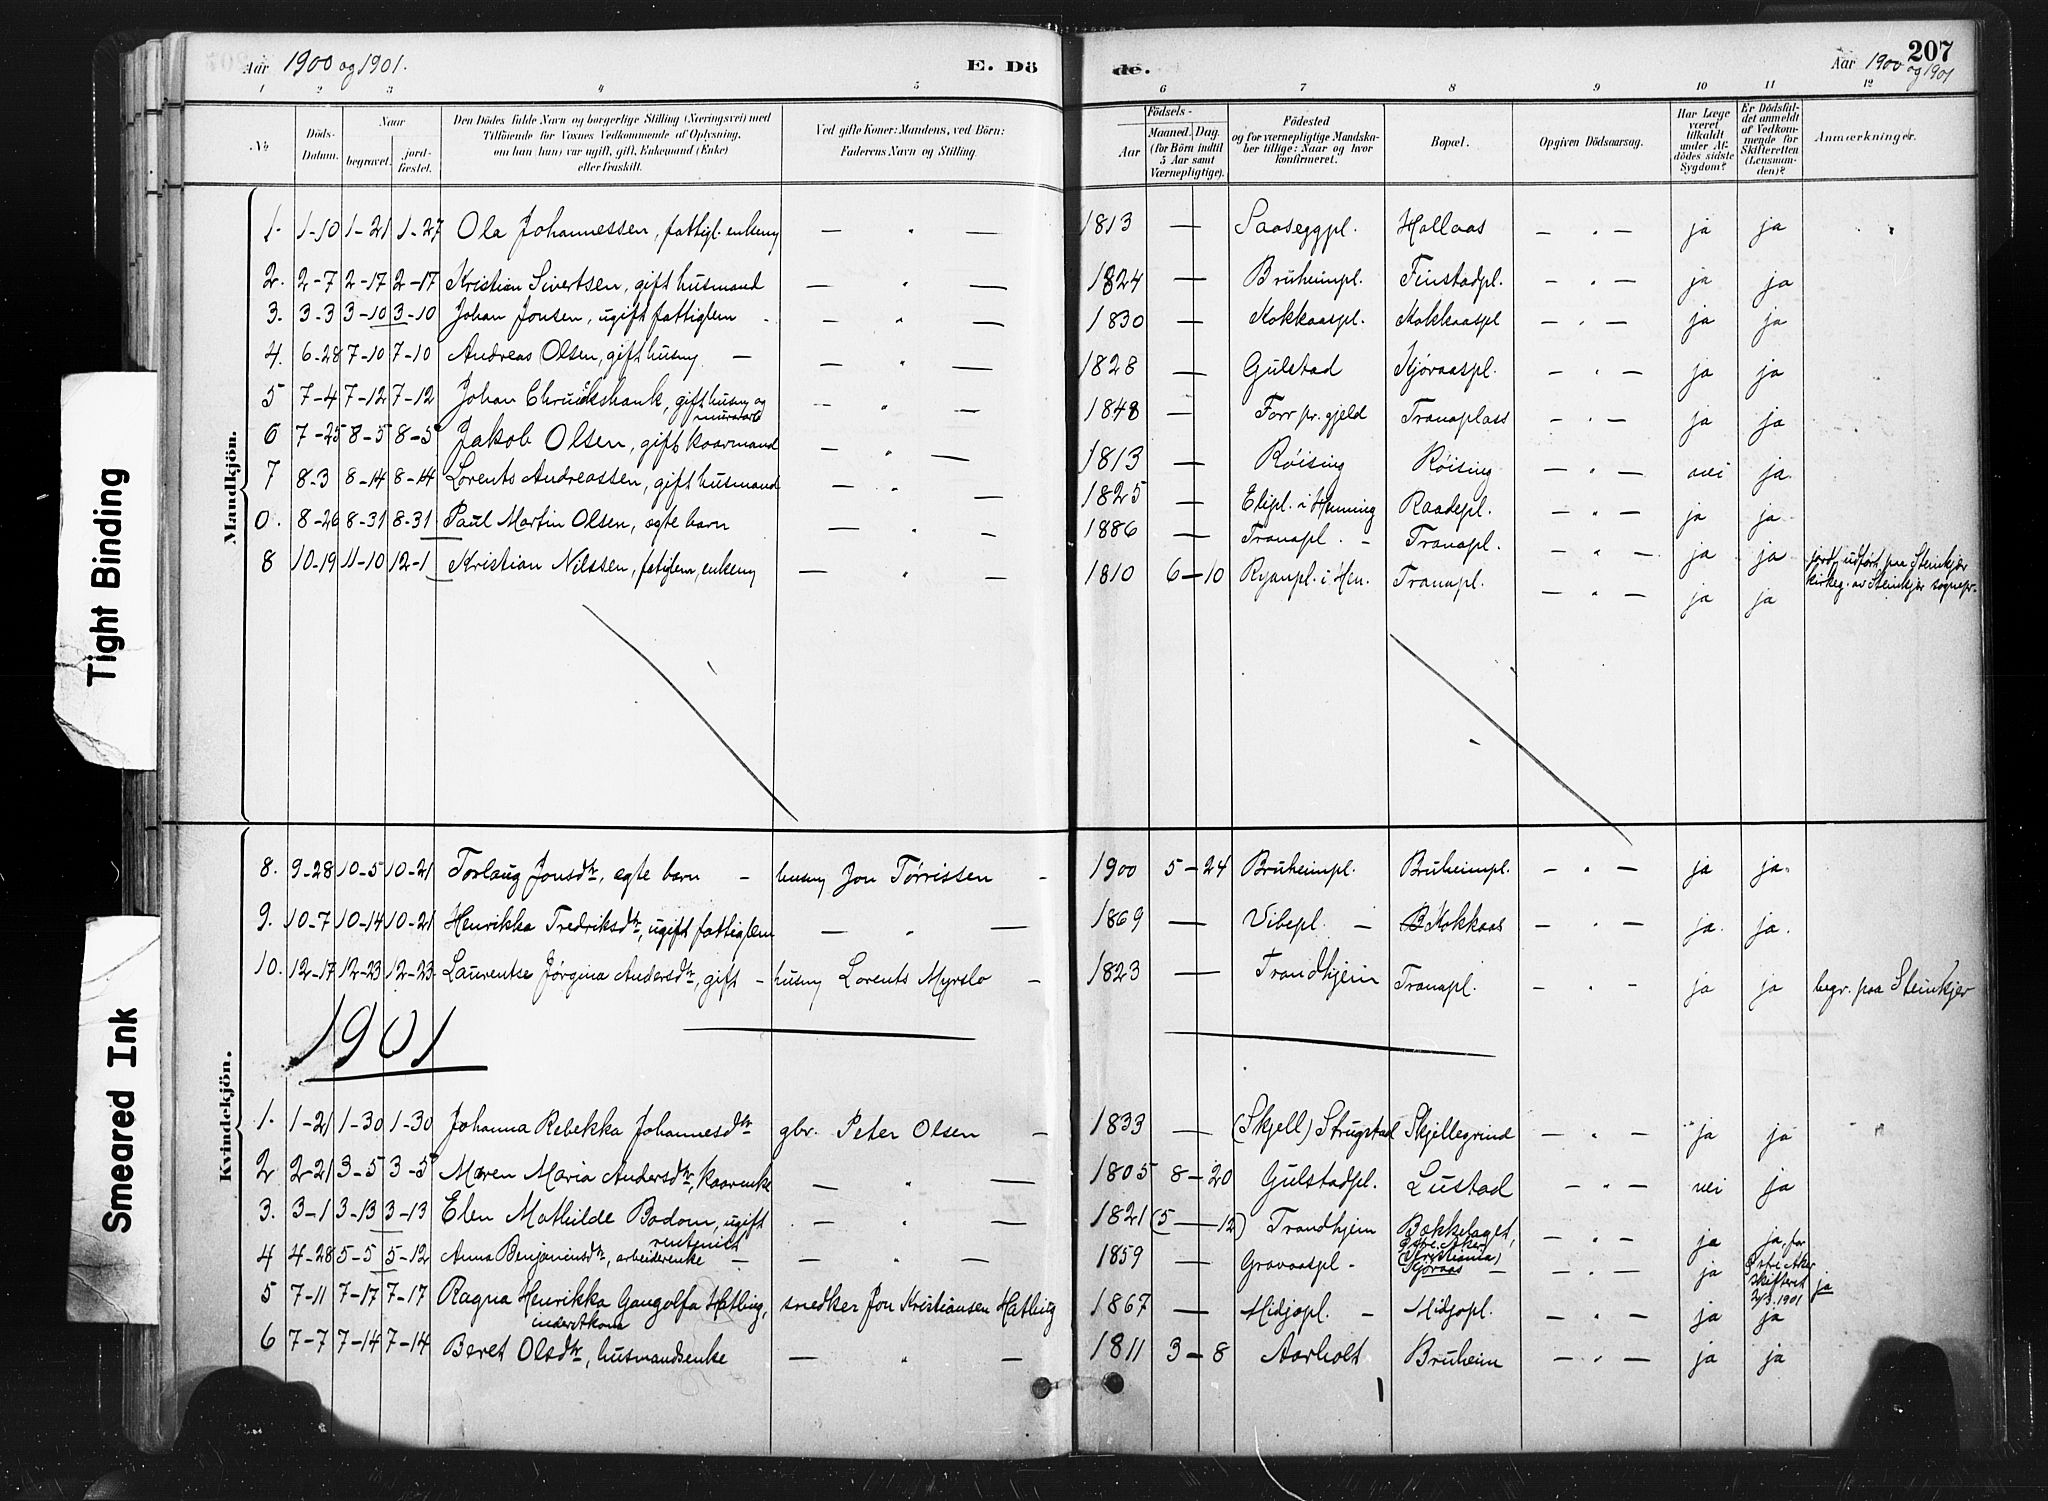 Aar 1900 og 1901.
E. Dö
de.
207
Aar 1900 og 1901
1 2 3 4 5 6 7 8 9 10 11 12
No
Döds-Datum.
Naar
begravet.
jord-fæstet.
Den Dödes fulde Navn og borgerlige Stilling (Næringsvei) med
Tilföiende for Voxnes Vedkommende af Oplysning,
om han (hun) var ugift, gift, Enkemand (Enke)
eller fraskilt.
Ved gifte Koner: Mandens, ved Börn:
Faderens Navn og Stilling.
Födsels-
Aar
Maaned. Dag.
(for Börn indtil
5 Aar samt
Værnepligtige).
Födested
og for værnepligtige Mandska-
ber tillige: Naar og hvor
konfirmeret.
Bopæl.
Opgiven Dödsaarsag.
Har Læge
været
tilkaldt
under Af-
dödes sidste
Sygdom?
Er Dödsfal-
det anmeldt
af Vedkom-
mende for
Skifteretten
(Lensman-
den)?
Anmærkninger.
Mandkjön.
1. 1-10 1-21 1-27 Ola Johannessen, fattigl. enkem — " — 1813 — Saaseggpl. Hallaas — " — ja ja
2. 2-7 2-17 2-17 Kristian Sivertsen, gift husmand — " — 1824 — Bruheimpl. Finstadpl. — " — ja ja
3. 3-3 3-10 3-10 Johan Jonsen, ugift fattiglem — " — 1830 — Kokkaaspl. Kokkaaspl — " — ja ja
4. 6-28 7-10 7-10 Andreas Olsen, gift husm — — " — 1828 — Gulstad Kjøraaspl. — " — ja ja
5 7-4 7-12 7-12 Johan Chruikshank, gift husm og
murarb — " — 1848 — Forr pr. gjeld Tranaplass — " — ja ja
6 7-25 8-5 8-5 Jakob Olsen, gift kaarmand — " — 1813 — Røising Røising — " — nei ja
7 8-3 8-14 8-14 Lorents Andreassen, gift husmand — " — 1825 — Elipl. i Henning Raadepl. — " — ja ja
0. 8-26 8-31 8-31 Paul Martin Olsen, ægte barn — " — 1886 — Tranapl. — Tranapl. — " — ja ja
8 10-19 11-10 12-1 Kristian Nilssen, fatiglem, enkem — " — 1810 6 — 10 Ryanpl. i Hen. Tranapl. — " — ja ja jordf. udført paa Steinkjær
kirkeg. av Steinkjer sognepr.
Kvindekjön.
8. 9-28 10-5 10-21 Torlaug Jonsdtr, ægte barn — husm Jon Tørrissen — 1900 5 — 24 Bruheimpl. Bruheimpl. — " — ja ja
9. 10-7 10-14 10-21 Henrikka Fredriksdtr, ugift fattiglem — " — 1869 — Vibepl. — Kokkaas — " — ja. ja.
10. 12-17 12-23 12-23 Laurentse Jørgina Andersdtr, gift — husm Lorents Myrslo — 1823 — Trondhjem Tranapl. — " — ja ja begr. paa Steinkjer
1901
1. 1-21 1-30 1-30 Johanna Rebekka Johannesdtr gbr. Peter Olsen — 1833 — (Skjell) Strugstad Skjellegrind — " — ja ja
2 2-21 3-5 3-5 Maren Maria Andersdtr, kaarenke — " — 1805 8 — 20 Gulstadpl. Lustad — " — nei ja
3. 3-1 3-13 3-13 Elen Mathilde Bodom, ugift
rentenist — " — 1821 (5 — 12) Trondhjem Bækkelaget,
Østre Aker
(Kristiania) — " — ja ja, for
Østre Aker
skifteret
2/3. 1901
4 4-28 5-5 5-12 Anna Benjaminsdtr, arbeiderenke — — " — 1859 — Gravaaspl. — Kjøraas — ja ja
5 7-11 7-17 7-17 Ragna Henrikka Gangolfa Hatling,
inderstkone snedker Jon Kristiansen Hatling 1867 — Midjopl. — Midjopl. — " — ja ja
6 7-7 7-14 7-14 Beret Olsdtr, husmandsenke — " — 1811 3 — 8 Aarholt Bruheim — " — ja ja
Tight Binding
Smeared Ink